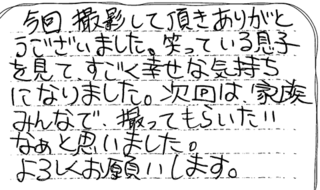 今回 撮影して頂きありがと
うございました。笑っている息子
を見て、すごく幸せな気持ち
になりました。次回は、家族
みんなで、撮ってもらいたい
なぁと思いました。
よろしくお願いします。